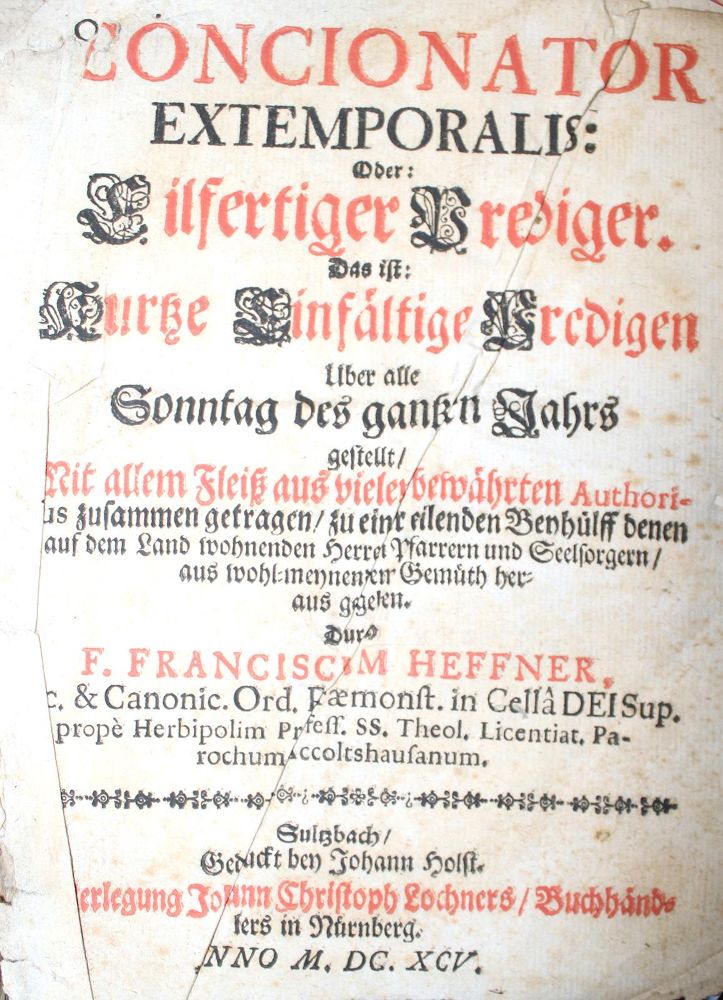 CONCIONATOR
EXTEMPORALIS:
Oder:
Eilfertiger Prediger.
Das ist:
Kurtze Einfältige Predigen
Uber alle
Sonntag des gantzn Jahrs
gestellt/
Mit allem Fleiß aus vielen bewährten Authori-
us zusammen getragen/ zu einr eilenden Beyhülff denen
auf dem Land wohnenden Herren Pfarrern und Seelsorgern/
aus wohl-meynenden Gemüth her-
aus gegeben.
Durch
F. FRANCISCUM HEFFNER,
c. & Canonic. Ord. Præmonst. in Cellâ DEI Sup.
propè Herbipolim Professs. SS. Theol. Licentiat. Pa-
rochum Accoltshausanum.
Sultzbach/
Gedruckt bey Johann Holst.
erlegung Johann Christoph Lochners/ Buchhänd-
lers in Nürnberg.
ANNO M. DC. XCV.